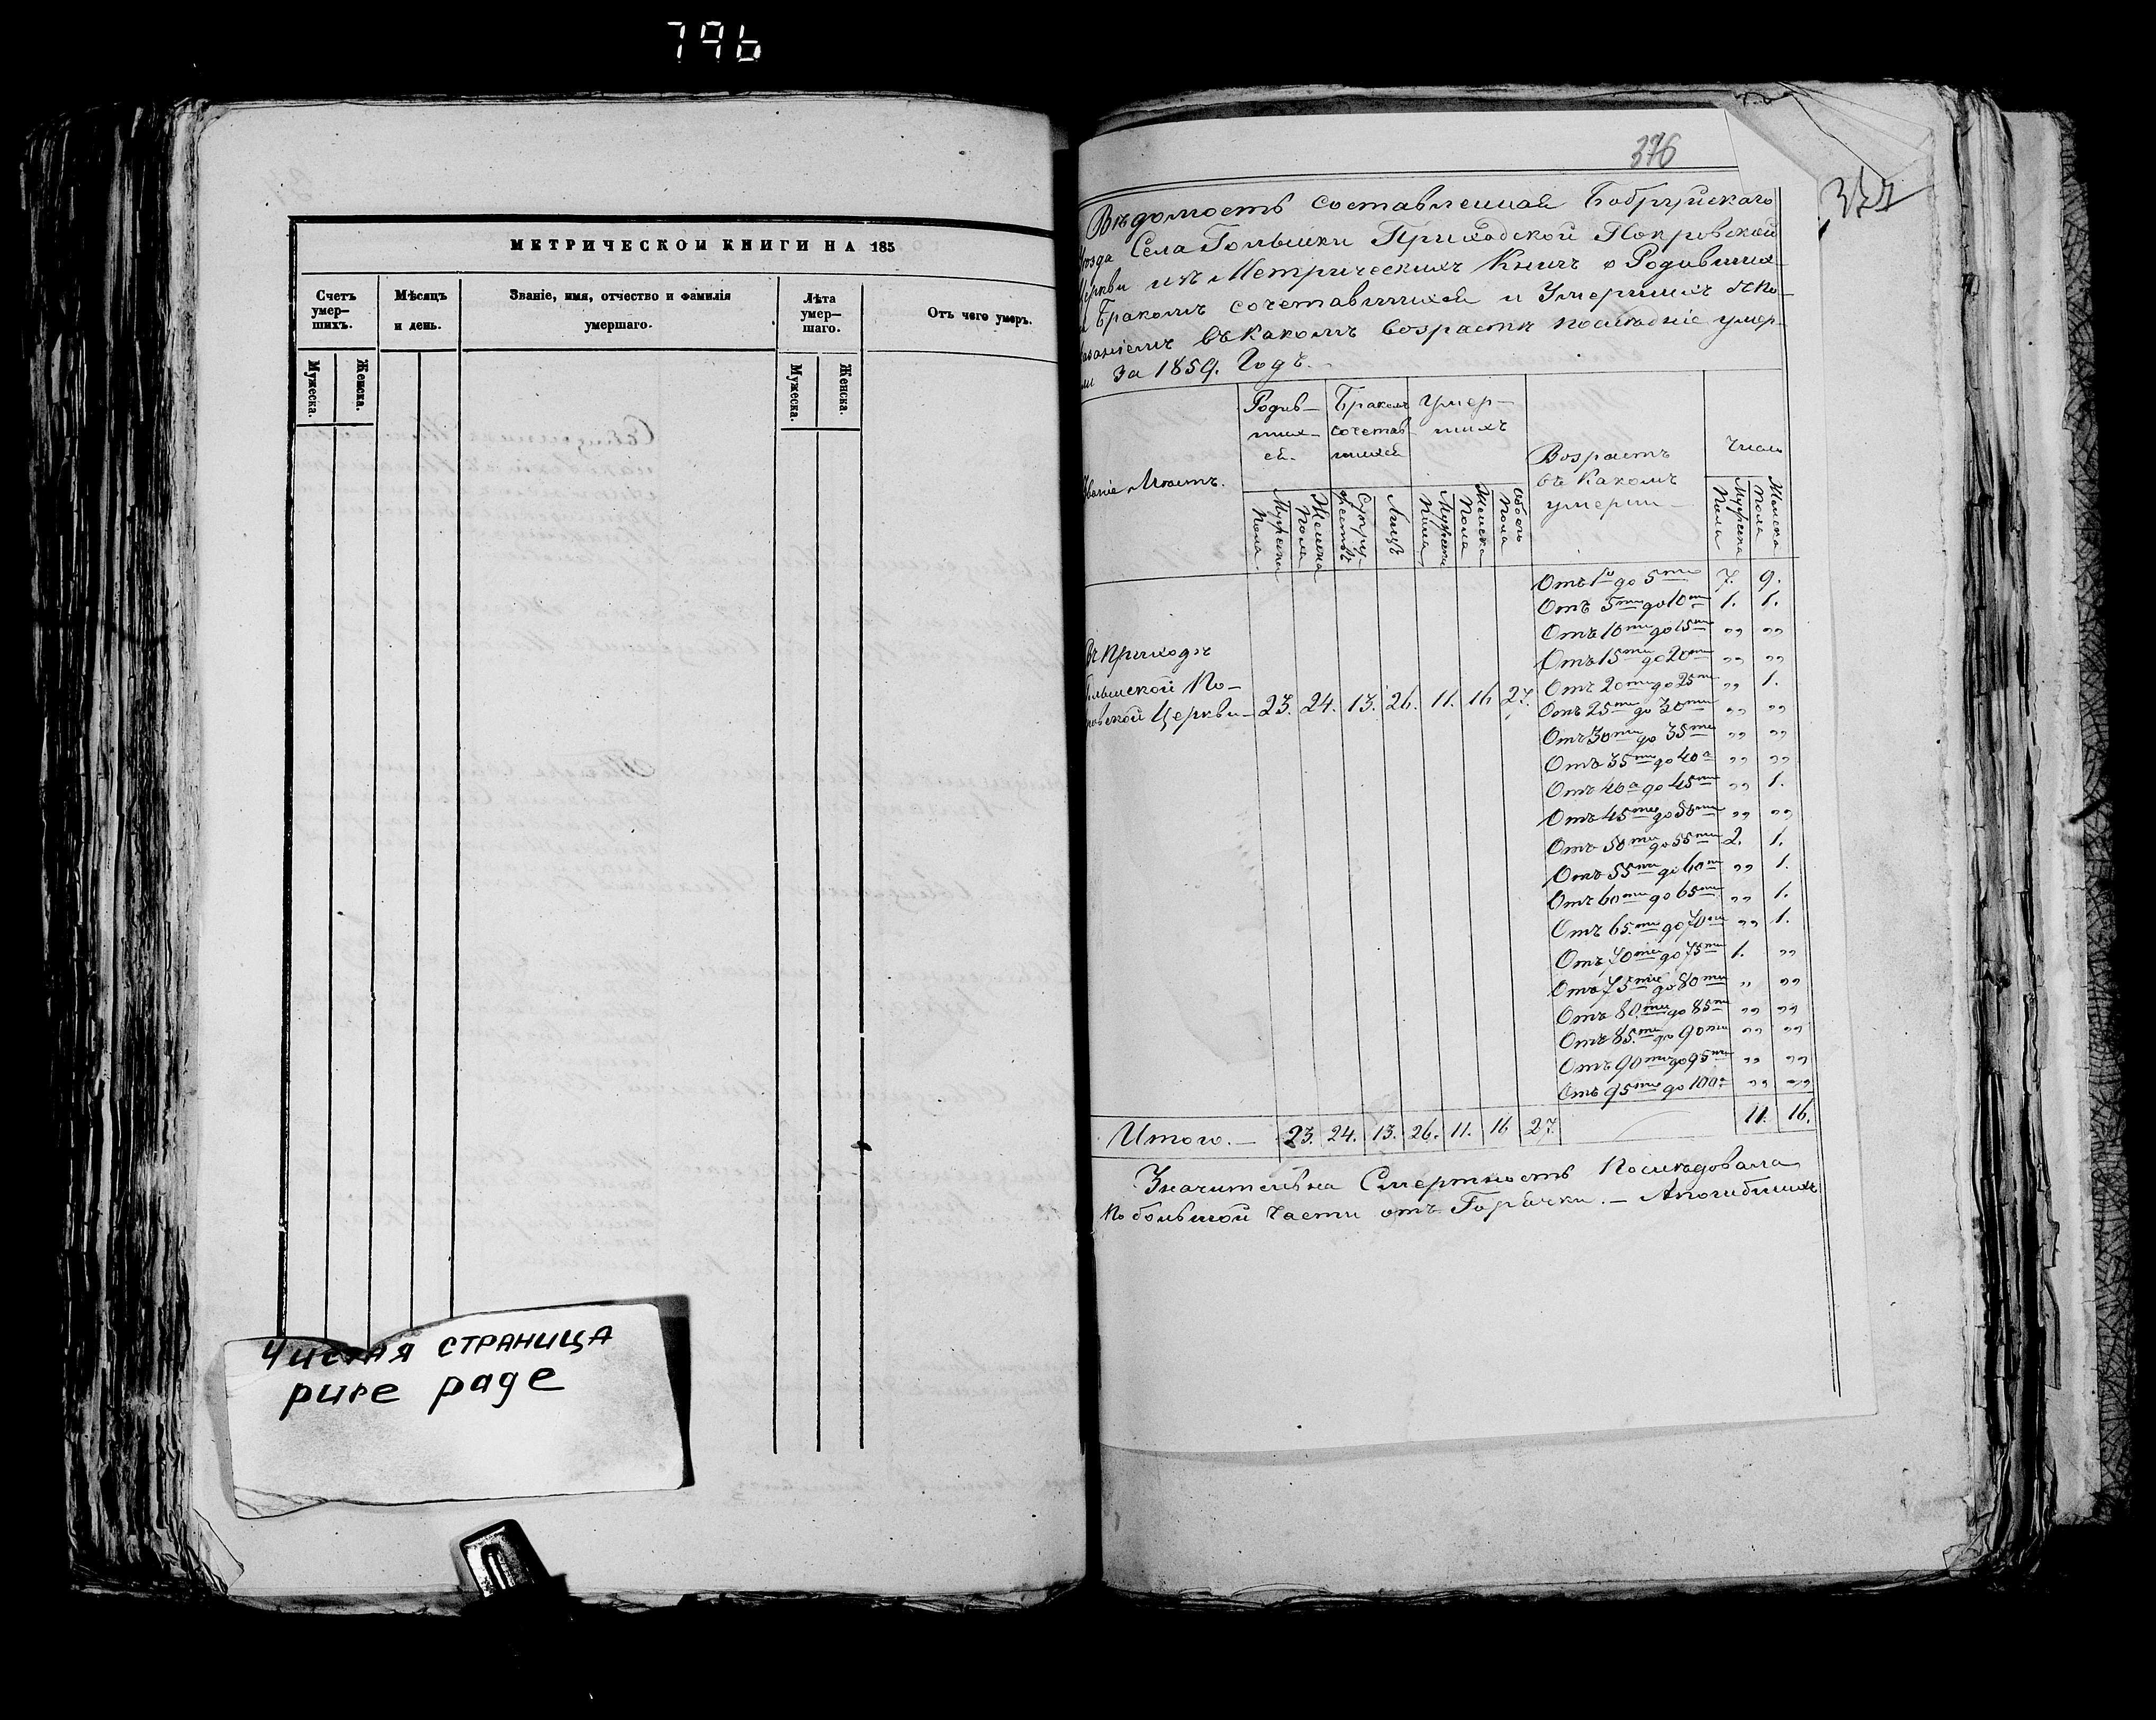 796
МЕТРИЧЕСКОЙ КНИГИ НА 185
Счетъ умер–шихъ.
Мѣсяцъ и день.
Званіе, имя, отчество и фамилія умершаго.
Лѣта умер–шаго.
Отъ чего умеръ.
Мужеска.
Женска.
Мужеска.
Женска.
Чистая страница
pure page
376
Вѣдомость составленная Бобруйскаго
Села Голынки Приходской Покровской
изъ Метрическихъ Книгъ о Родивших-
Бракомъ сочетавшихся и Умершихъ съ по-
въ какомъ возрастѣ послѣдніе умер-
за 1859. Годъ.
Мѣстъ.
Родив–ших–ся.
Бракомъ сочетав–шихся
Умер–шихъ
Возрастъ въ какомъ умерли
Число
Мужеска Пола
Женска Пола
Супру–жествъ
Лицъ
Мужеска Пола
Женска Пола
Обоего Пола
Мужеска Пола
Женска Пола
Отъ 1го до 5ти 7. 9.
Отъ 5ти до 10ти 1. 1.
Отъ 10ти до 15ти „ „
Отъ 15ти до 20ти „ „
Отъ 20ти до 25ти „ 1.
Отъ 25ти до 30ти „ „
Отъ 30ти до 35ти „ „
Отъ 35ти до 40а „ „
Отъ 40а до 45ти „ 1.
Отъ 45ти до 50ти „ „
Отъ 50ти до 55ти 2. 1.
Отъ 55ти до 60ти „ 1.
Отъ 60ти до 65ти „ 1.
Отъ 65ти до 70ти „ 1.
Отъ 70ти до 75ти 1. „
Отъ 75ти до 80ти „ „
Отъ 80ти до 85ти „ „
Отъ 85ти до 90ти „ „
Отъ 90ти до 95ти „ „
Отъ 95ти до 100а „ „
Въ Приходѣ
По–
Церкви– 23. 24. 13. 26. 11. 16 27.
Итого.– 23. 24. 13. 26. 11. 16 27. 11. 16.
Значительна Смертность Послѣдовала
По большой части отъ Горячки.– А погибшихъ